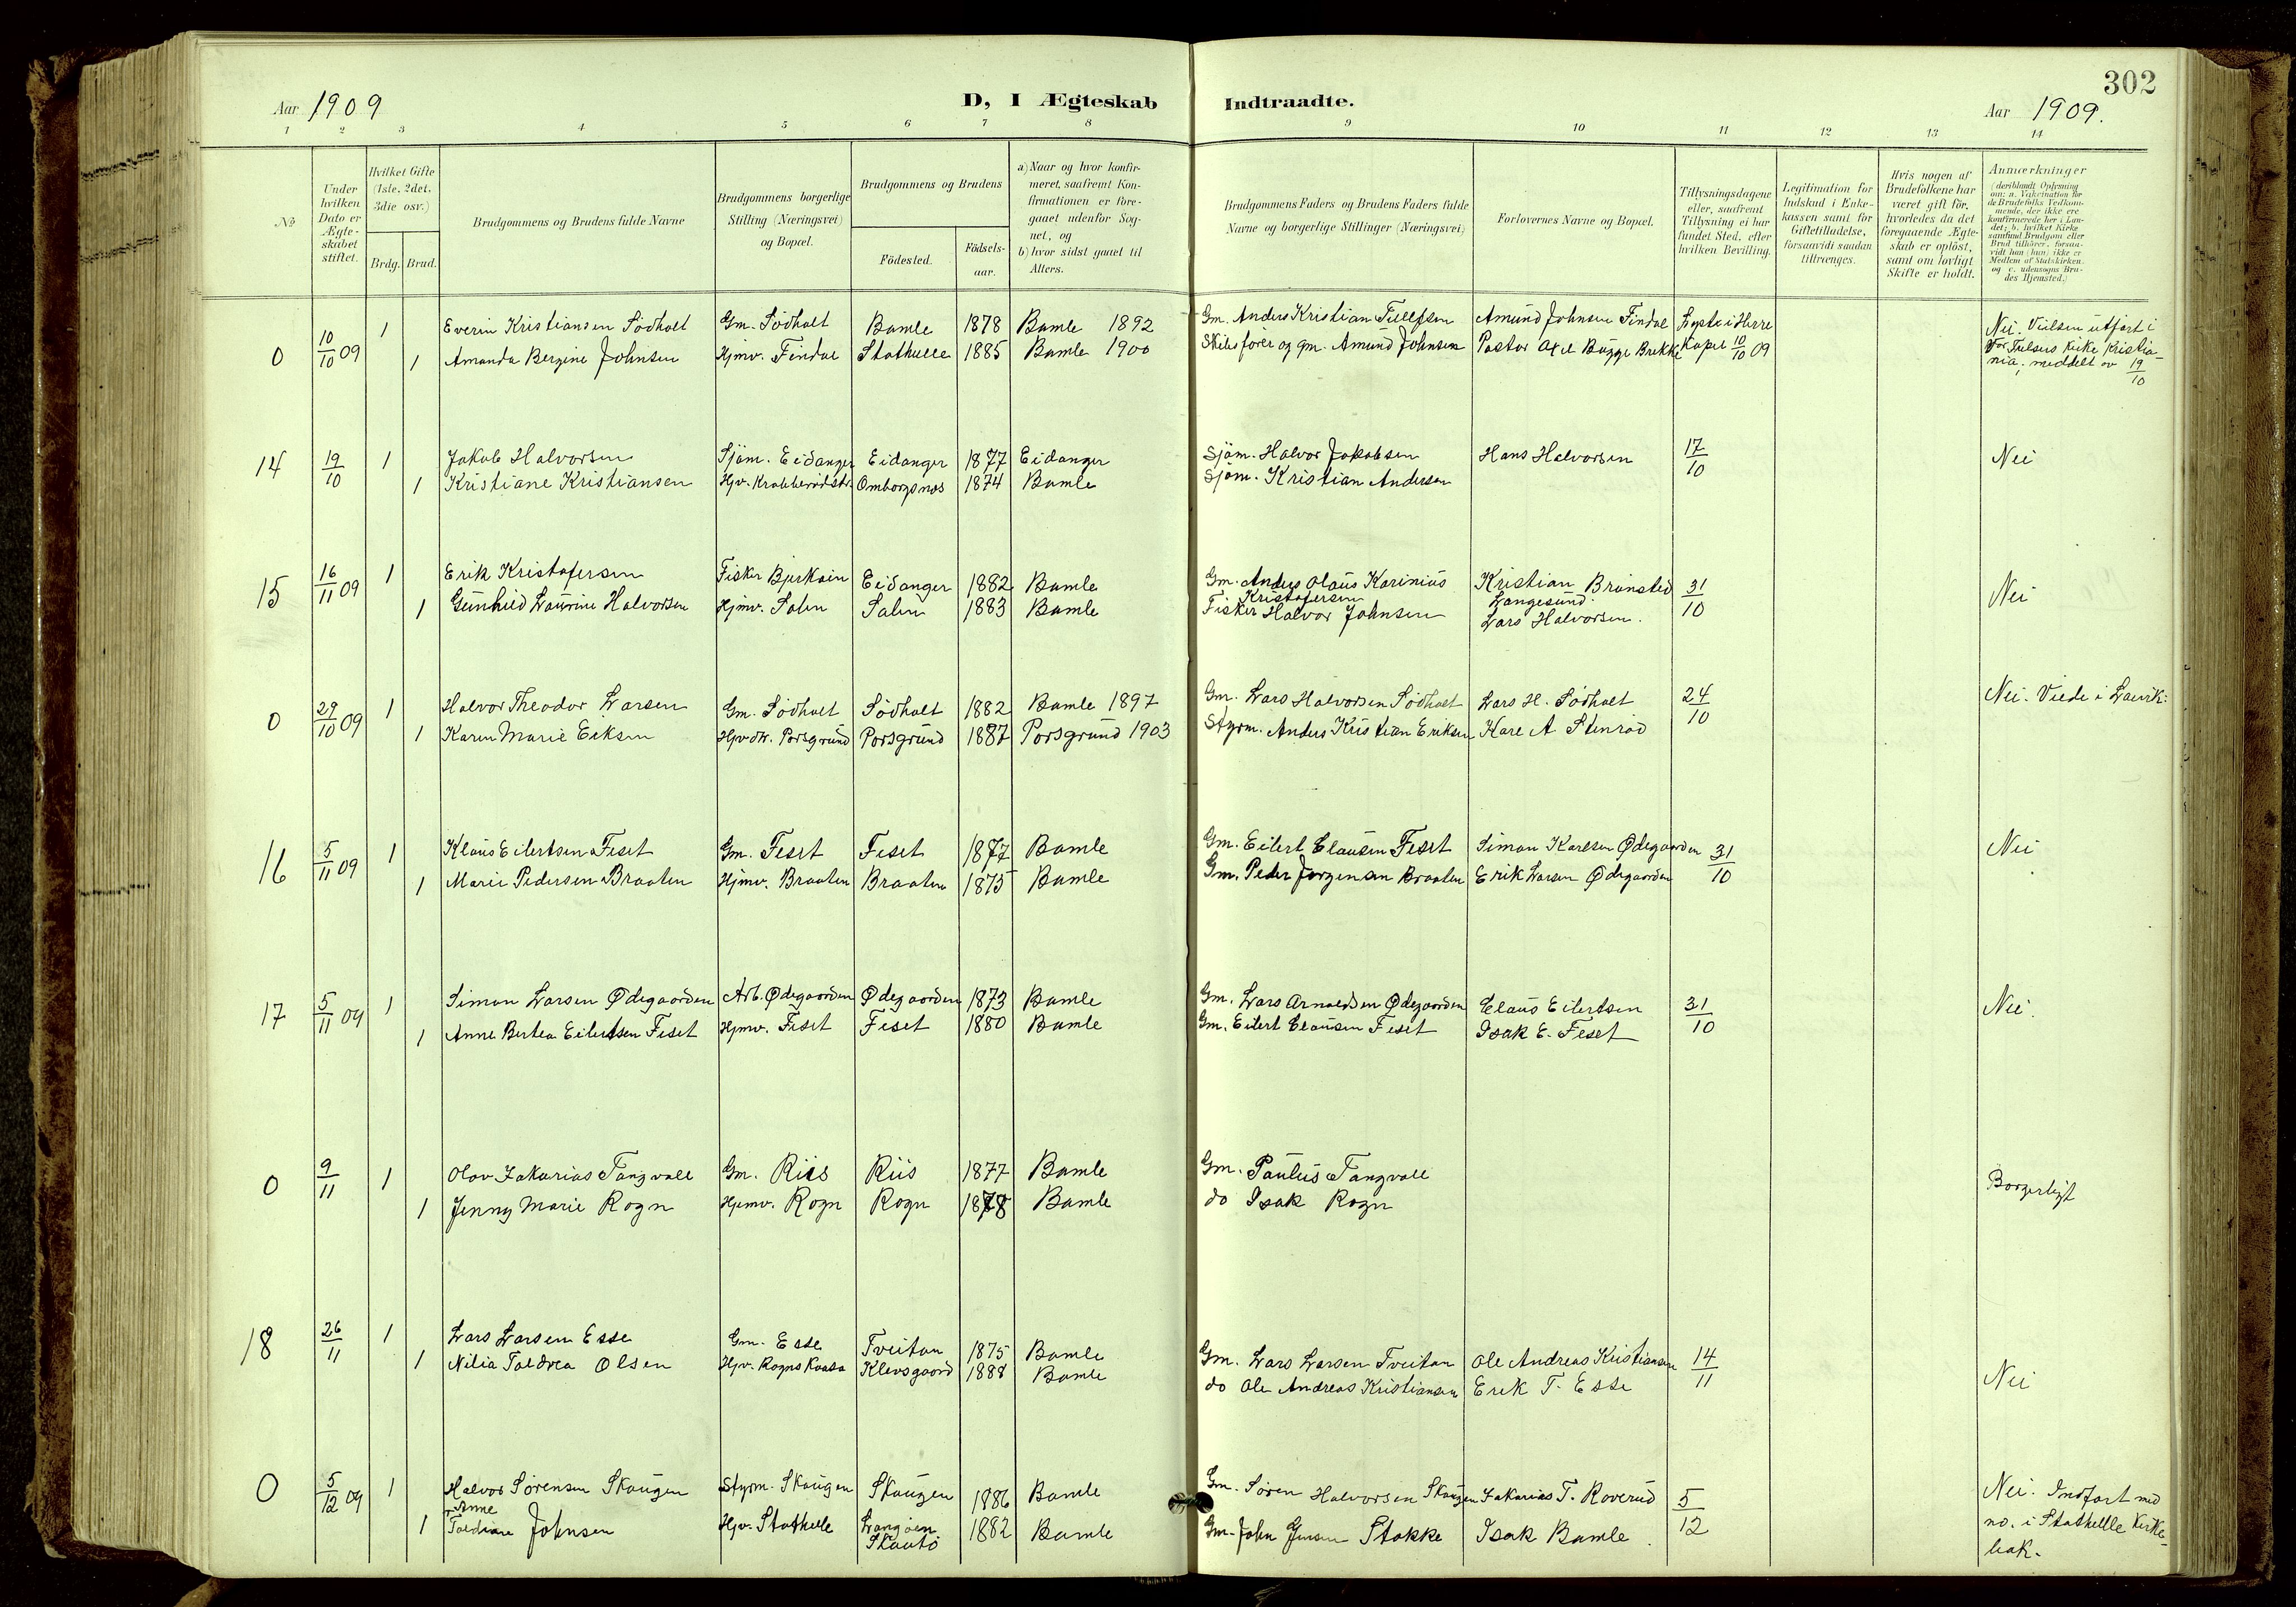 302
Aar 1909
D, I Ægteskab Indtraadte.
Aar 1909.
1 2 3 4 5 6 7 8 9 10 11 12 13 14
No
Under hvilken Dato er Ægteskabet stiftet.
Hvilket Gifte (1ste, 2det, 3die osv.)
Brdg. Brud.
Brudgommens og Brudens fulde Navne
Brudgommens borgerlige Stilling (Næringsvei) og Bopæl.
Brudgommens og Brudens
Födested.
Födsels-aar.
a) Naar og hvor konfirmeret, saafremt Konfirmationen er foregaaet udenfor Sognet, og
b) hvor sidst gaaet til Alters.
Brudgommens Faders og Brudens Faders fulde Navne og borgerlige Stillinger (Næringsvei)
Forlovernes Navne og Bopæl.
Tillysningsdagene eller, saafremt Tillysning ei har fundet Sted, efter hvilken Bevilling.
Legitimation for Indskud i Enkekassen samt for Giftetilladelse, forsaavidt saadan tiltrænges.
Hvis nogen af Brudefolkene har været gift för, hvorledes da det foregaaende Ægteskab er oplöst, samt om lovligt Skifte er holdt.
Anmærkninger
(deriblandt Oplysning om: a. Vakcination for de Brudefolks Vedkommende, der ikke ere konfirmerede her i Landet; b. hvilket Kirkesamfund Brudgom eller Brud tilhörer, forsaavidt han (hun) ikke er Medlem af Statskirken, og c. udensogns Brudes Hjemsted.)
0 10/10 09 1 Everin Kristiansen Södholt Gm. Södholt Bamle 1878 Bamle 1892 Gm. Anders Kristian Tellefsen Amund Johnsen Findal Lyste i Herre Nei. Vielsen utfört i
1 Amanda Bergine Johnsen Hjmv. Findal Stathelle 1885 Bamle 1900 Skibsförer og gm. Amund Johnsen Pastor Axel Bugge Brekke Kapel 10/10 09 Vor Frelsers Kirke Kristia-
nia, meddelt ov 19/10
14 19/10 1 Jakob Halvorsen Sjöm. Eidanger Eidanger 1877 Eidanger Sjöm. Halvor Jakobsen Hans Halvorsen 17/10 Nei
1 Kristiane Kristiansen Hjv. Krabberödstr. Omborgsnes 1874 Bamle Sjöm. Kristian Andersen
15 16/11 09 1 Erik Kristofersen Fisker Bjerkøin Eidanger 1882 Bamle Gm. Anders Olaus Karinius Kristofersen Kristian Brönsted Langesund. 31/10 Nei
1 Gunhild Laurine Halvorsen Hjmv. Salen Salen 1883 Bamle Fisker Halvor Johnsen Lars Halvorsen.
0 29/10 09 1 Halvor Theodor Larsen Gm. Södholt Södholt 1882 Bamle 1897 Gm. Lars Halvorsen Södholt Lars H. Södholt 24/10 Nei. Viede i Laurik.
1 Karen Marie Eiksen Hjvdtr. Porsgrund Porsgrund 1887 Porsgrund 1903 Styrm. Anders Kristian Eriksen Kare A Stenröd
16 5/11 09 1 Klaus Eilertsen Feset Gm. Feset Feset 1877 Bamle Gm. Eilert Clausen Feset Simon Karlsen Ødegaarden 31/10 Nei
1 Marie Pedersen Braaten Hjmv. Braaten Braaten 1875 Bamle Gm. Peder Jørgensen Braaten Erik Larsen Ødegaarden
17 5/11 09 1 Simon Larsen Ødegaarden Arb. Ødegaarden Ødegaarden 1873 Bamle Gm. Lars Arnoldsen Ødegaarden Claus Eilertsen 31/10 Nei.
1 Anne Bertea Eilertsen Feset Hjmv. Feset Feset 1880 Bamle Gm. Eilert Clausen Feset Isak E. Feset
0 9/11 1 Olav Zakarias Tangvall Gm. Riis Riis 1877 Bamle Gm. Paulus Tangvall Borgerligt
1 Jenny Marie Rogn Hjmv. Rogn Rogn 1878 Bamle do Isak Rogn
18 26/11 1 Lars Larsen Esse Gm. Esse Tveitan 1875 Bamle Gm. Lars Larsen Tveitan Ole Andreas Kristiansen 14/11 Nei
1 Nilia Taldrea Olsen Hjv. Rognskaasa Klevsgaard 1888 Bamle do Ole Andreas Kristiansen Erik T. Esse
0 5/12 09 1 Halvor Sörensen Skaugen Styrm. Skaugen Skaugen 1886 Bamle Gm. Sören Halvorsen Skaugen Zakarias T. Roverud 5/12 Nei. Indfört med
1 Anne Taldiane Johnsen Hjv. Stathelle Langöen Skautö 1882 Bamle Gm. John Jensen Stokke Isak Bamle no. i Stathelle Kirke-
bok.